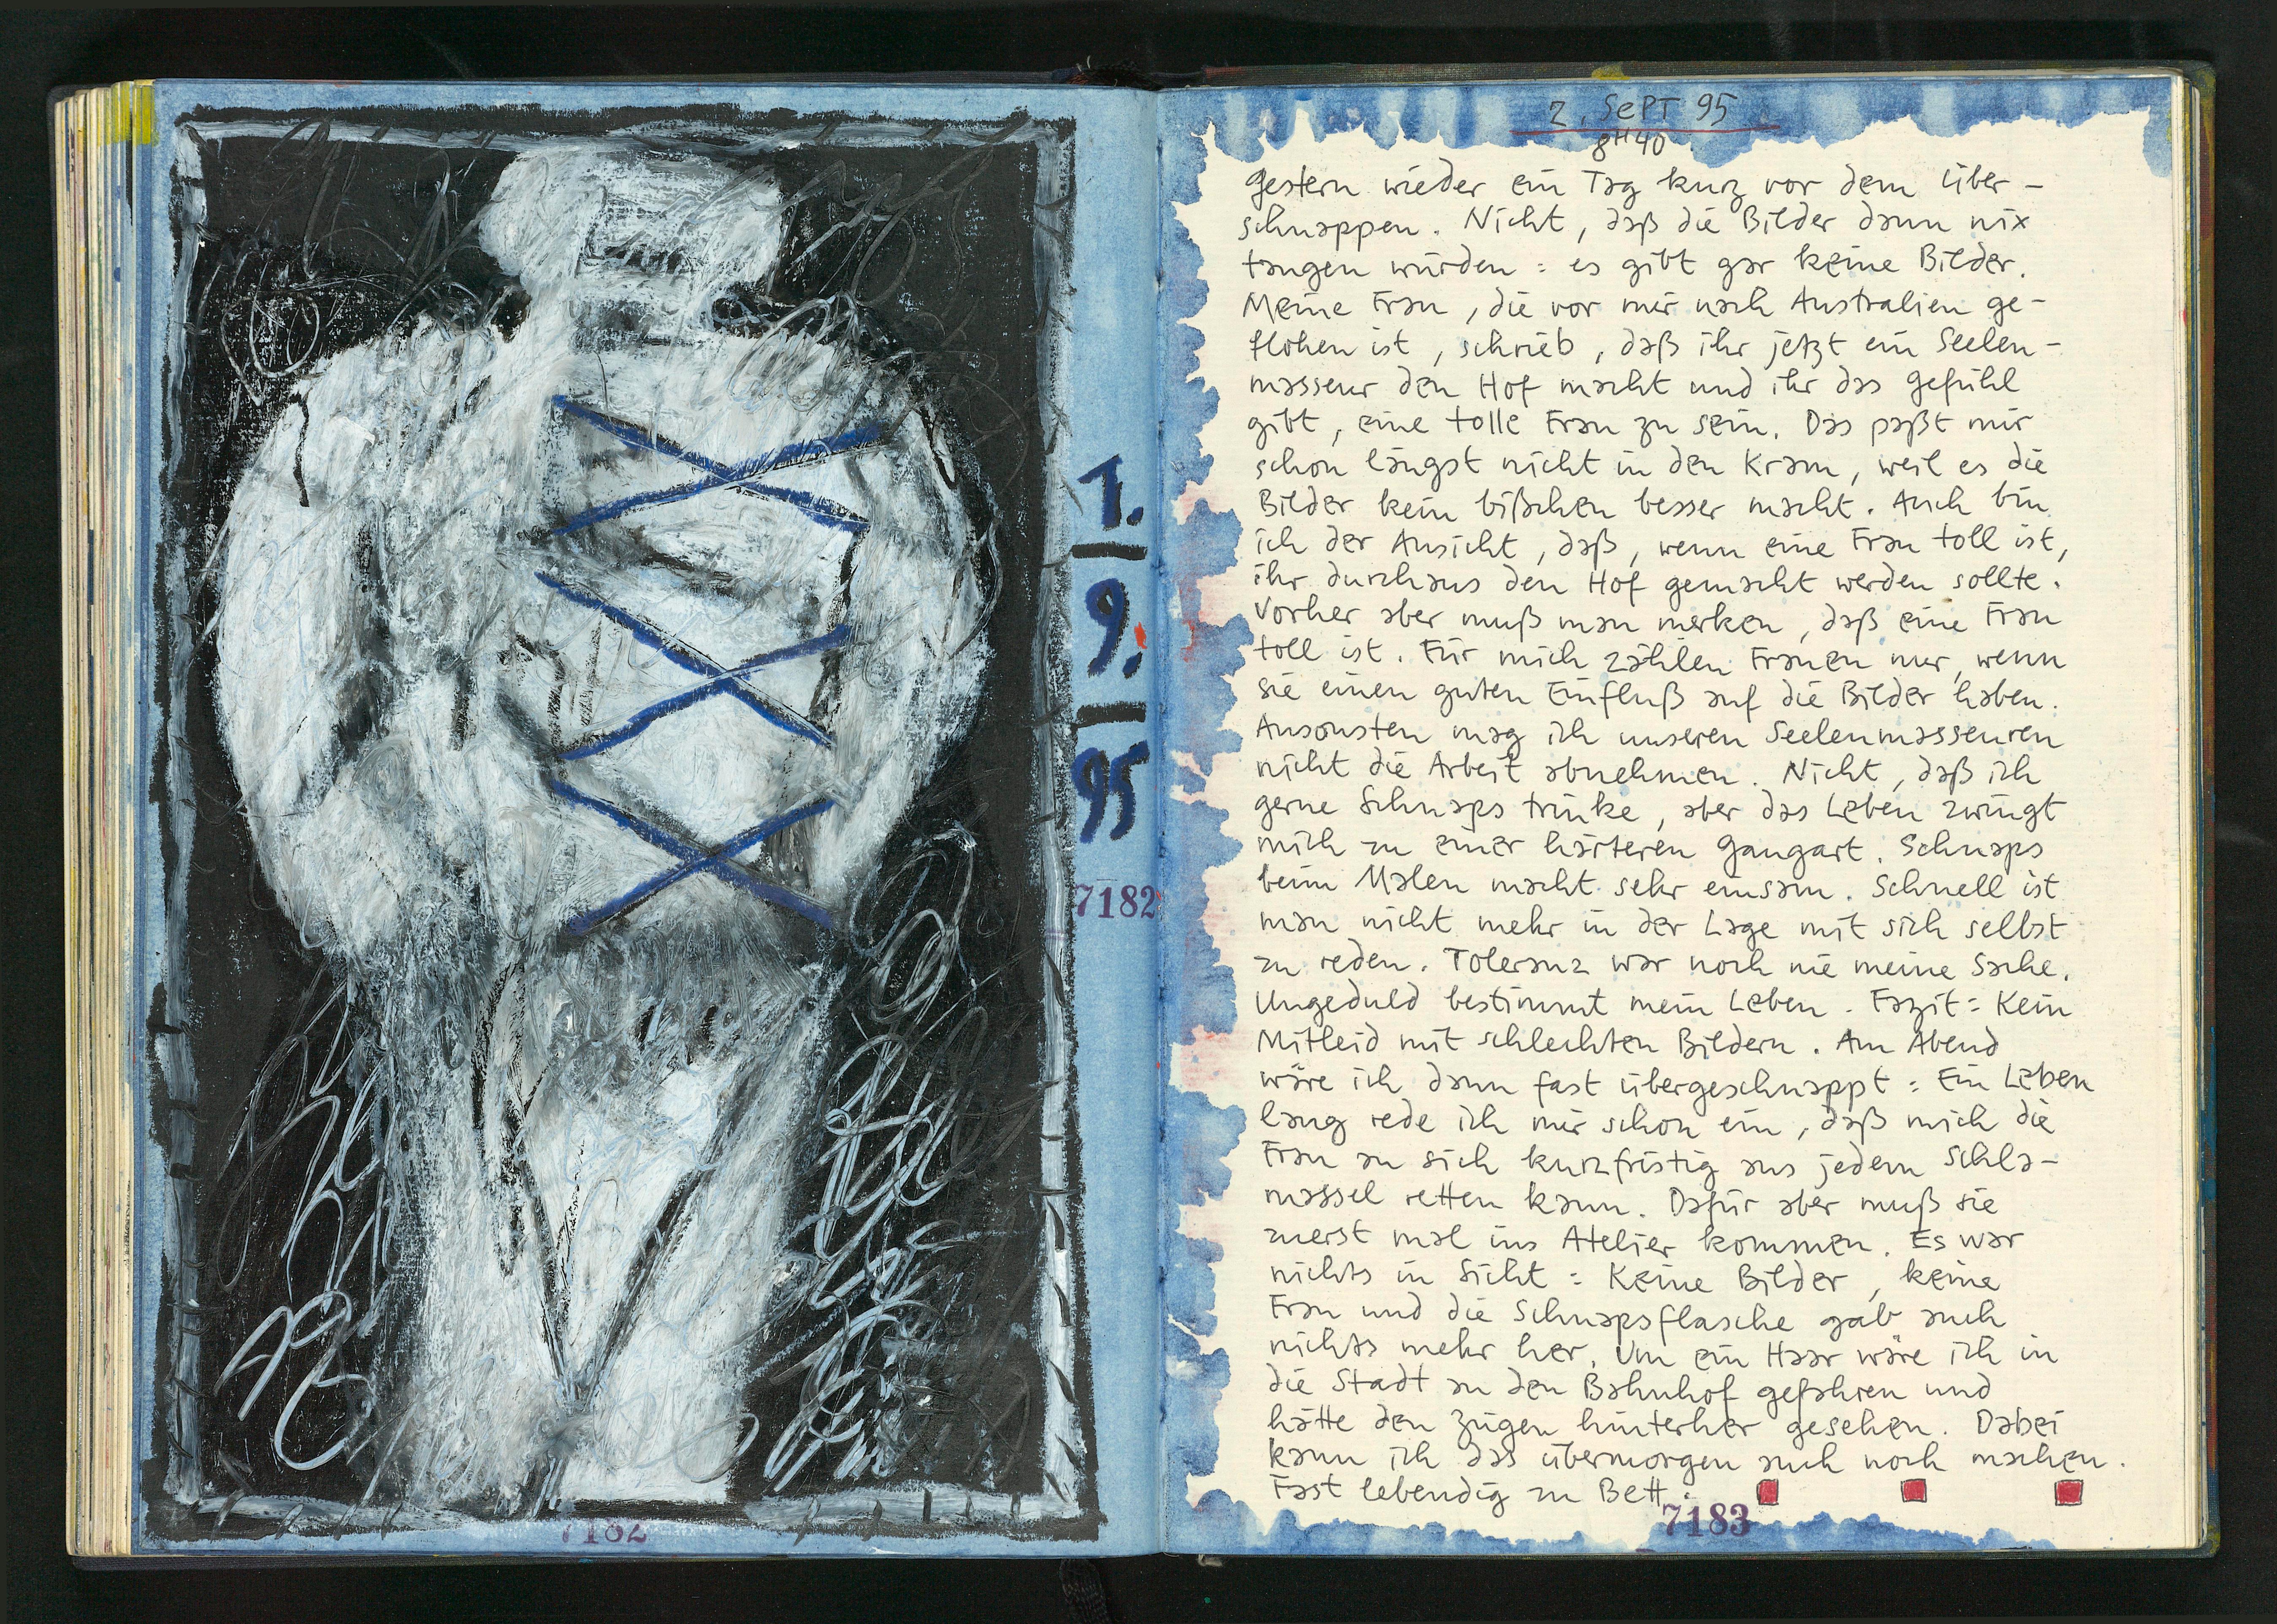 1.
9.
95
7182
7182
2. SEPT 95
8H40
Gestern wieder ein Tag kurz vor dem über-
schnappen. Nicht, daß die Bilder dann nix
taugen würden: es gibt gar keine Bilder.
Meine Frau, die vor mir nach Australien ge-
flohen ist, schrieb, daß ihr jetzt ein Seelen-
masseur den Hof macht und ihr das Gefühl
gibt, eine tolle Frau zu sein. Das paßt mir
schon längst nicht in den Kram, weil es die
Bilder kein bißchen besser macht. Auch bin
ich der Ansicht, daß, wenn eine Frau toll ist,
ihr durchaus den Hof gemacht werden sollte.
Vorher aber muß man merken, daß eine Frau
toll ist. Für mich zählen Frauen nur, wenn
sie einen guten Einfluß auf die Bilder haben.
Ansonsten mag ich unseren Seelenmasseuren
nicht die Arbeit abnehmen. Nicht, daß ich
gerne Schnaps trinke, aber das Leben zwingt
mich zu einer härteren Gangart. Schnaps
beim Malen macht sehr einsam. Schnell ist
man nicht mehr in der Lage mit sich selbst
zu reden. Toleranz war noch nie meine Sache.
Ungeduld bestimmt mein Leben. Fazit: Kein
Mitleid mit schlechten Bildern. Am Abend
wäre ich dann fast übergeschnappt: Ein Leben
lang rede ich mir schon ein, daß mich die
Frau an sich kurzfristig aus jedem Schla-
massel retten kann. Dafür aber muß sie
zuerst mal ins Atelier kommen. Es war
nichts in Sicht: Keine Bilder, keine
Frau und die Schnapsflasche gab auch
nichts mehr her. Um ein Haar wäre ich in
die Stadt zu den Bahnhof gefahren und
hätte den Zügen hinterher gesehen. Dabei
kann ich das übermorgen auch noch machen.
Fast lebendig zu Bett.
7183